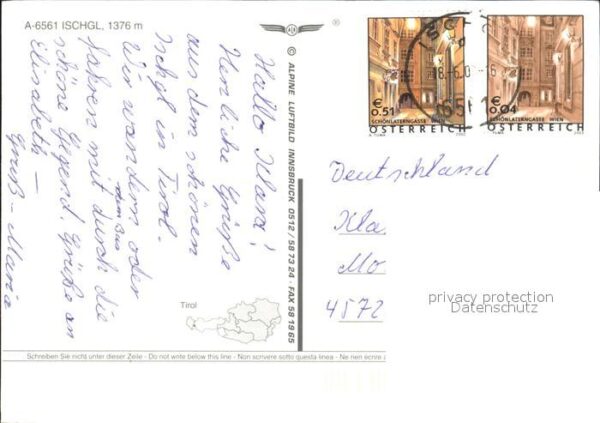 A-6561 ISCHGL, 1376 m
Hallo Klara!
Herzliche Grüße
aus dem schönen
Ischgl in Tirol.
Wir wandern oder
fahren mit dem Bus durch die
schöne Gegend. Grüße an
Elisabeth –
Gruß – Maria
Tirol
© ALPINE LUFTBILD INNSBRUCK 0512 / 58 73 24 · FAX 58 19 65
®
ISCHG
18.-6.0
6561
€ 0.51
SCHÖNLATERNGASSE WIEN
ÖSTERREICH
€ 0.04
SCHÖNLATERNGASSE WIEN
ÖSTERREICH
Deutschland
Kla
Mo
4572
privacy protection
Datenschutz
Schreiben Sie nicht unter dieser Zeile - Do not write below this line - Non scrivere sotto questa linea - Ne rien écrire